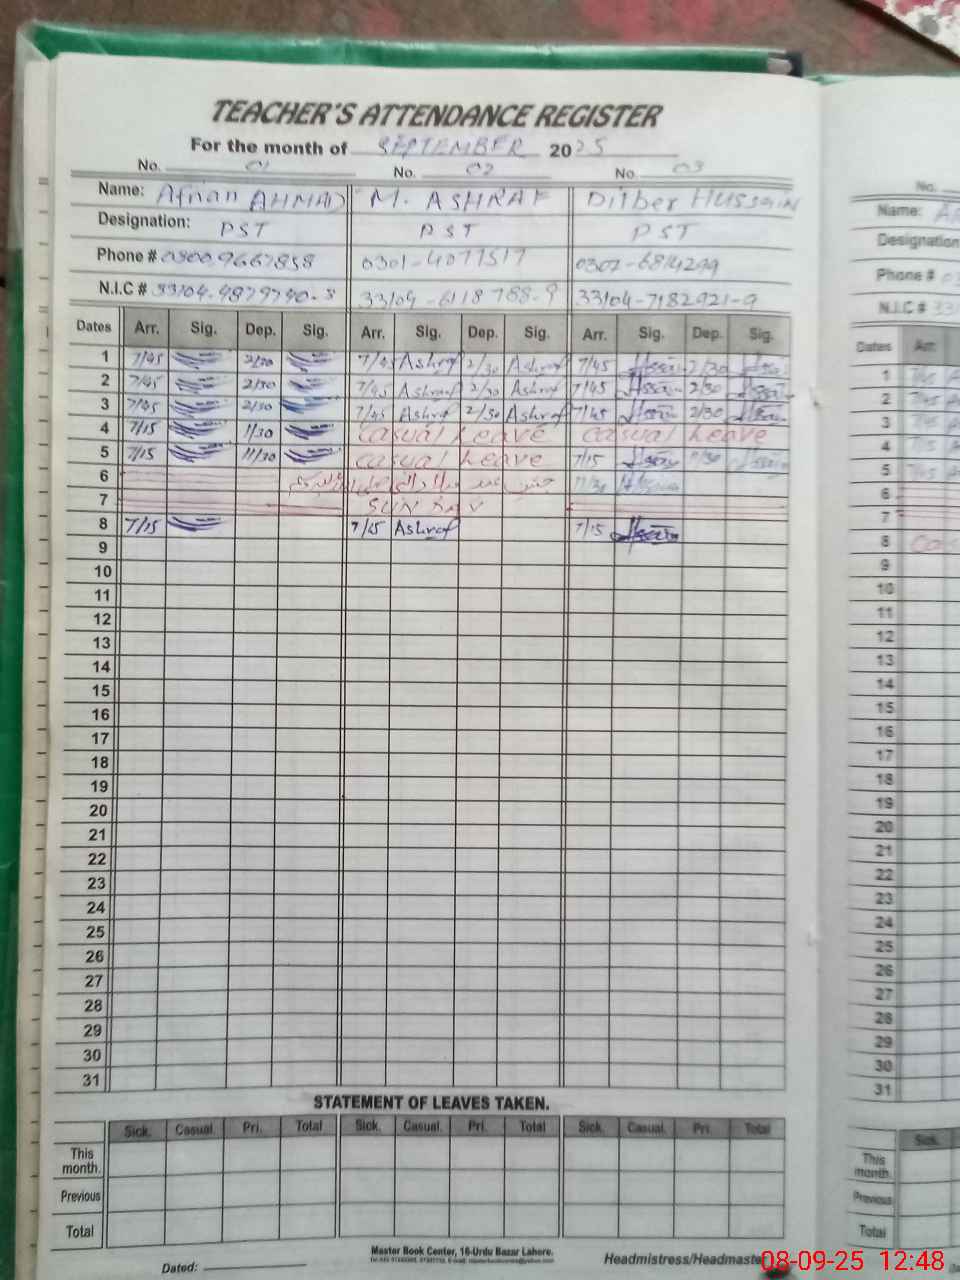 TEACHER'S ATTENDANCE REGISTER
For the month of SEPTEMBER 2025
No. 01 No. 02 No. 03
Name: Afnan AHMAD M. ASHRAF Dilber Hussain
Designation: PST PST PST
Phone # 0300.9667858 0301-4077517 0302-6814299
N.I.C # 33104-9879790-3 33104-6118788-9 33104-7182921-9
Dates Arr. Sig. Dep. Sig. Arr. Sig. Dep. Sig. Arr. Sig. Dep. Sig.
1 7/45 2/30 7/45 Ashraf 2/30 Ashraf 7/45 2/30
2 7/45 2/30 7/45 Ashraf 2/30 Ashraf 7/45 2/30
3 7/45 2/30 7/45 Ashraf 2/30 Ashraf 7/45 2/30
4 7/15 1/30 Casual Leave Casual Leave
5 7/15 11/30 Casual Leave 7/15 11/30
6
7 SUNDAY
8 7/15 7/15 Ashraf 7/15
9
10
11
12
13
14
15
16
17
18
19
20
21
22
23
24
25
26
27
28
29
30
31
STATEMENT OF LEAVES TAKEN.
Sick. Casual. Pri. Total Sick. Casual. Pri. Total Sick. Casual. Pri. Total
This month.
Previous
Total
Master Book Center, 16-Urdu Bazar Lahore.
Dated: Headmistress/Headmaster
No.
Name:
Designation
Phone #
N.I.C #
Dates Arr.
1
2
3
4
5
6
7
8
9
10
11
12
13
14
15
16
17
18
19
20
21
22
23
24
25
26
27
28
29
30
31
Sick.
This month.
Previous
Total
08-09-25 12:48